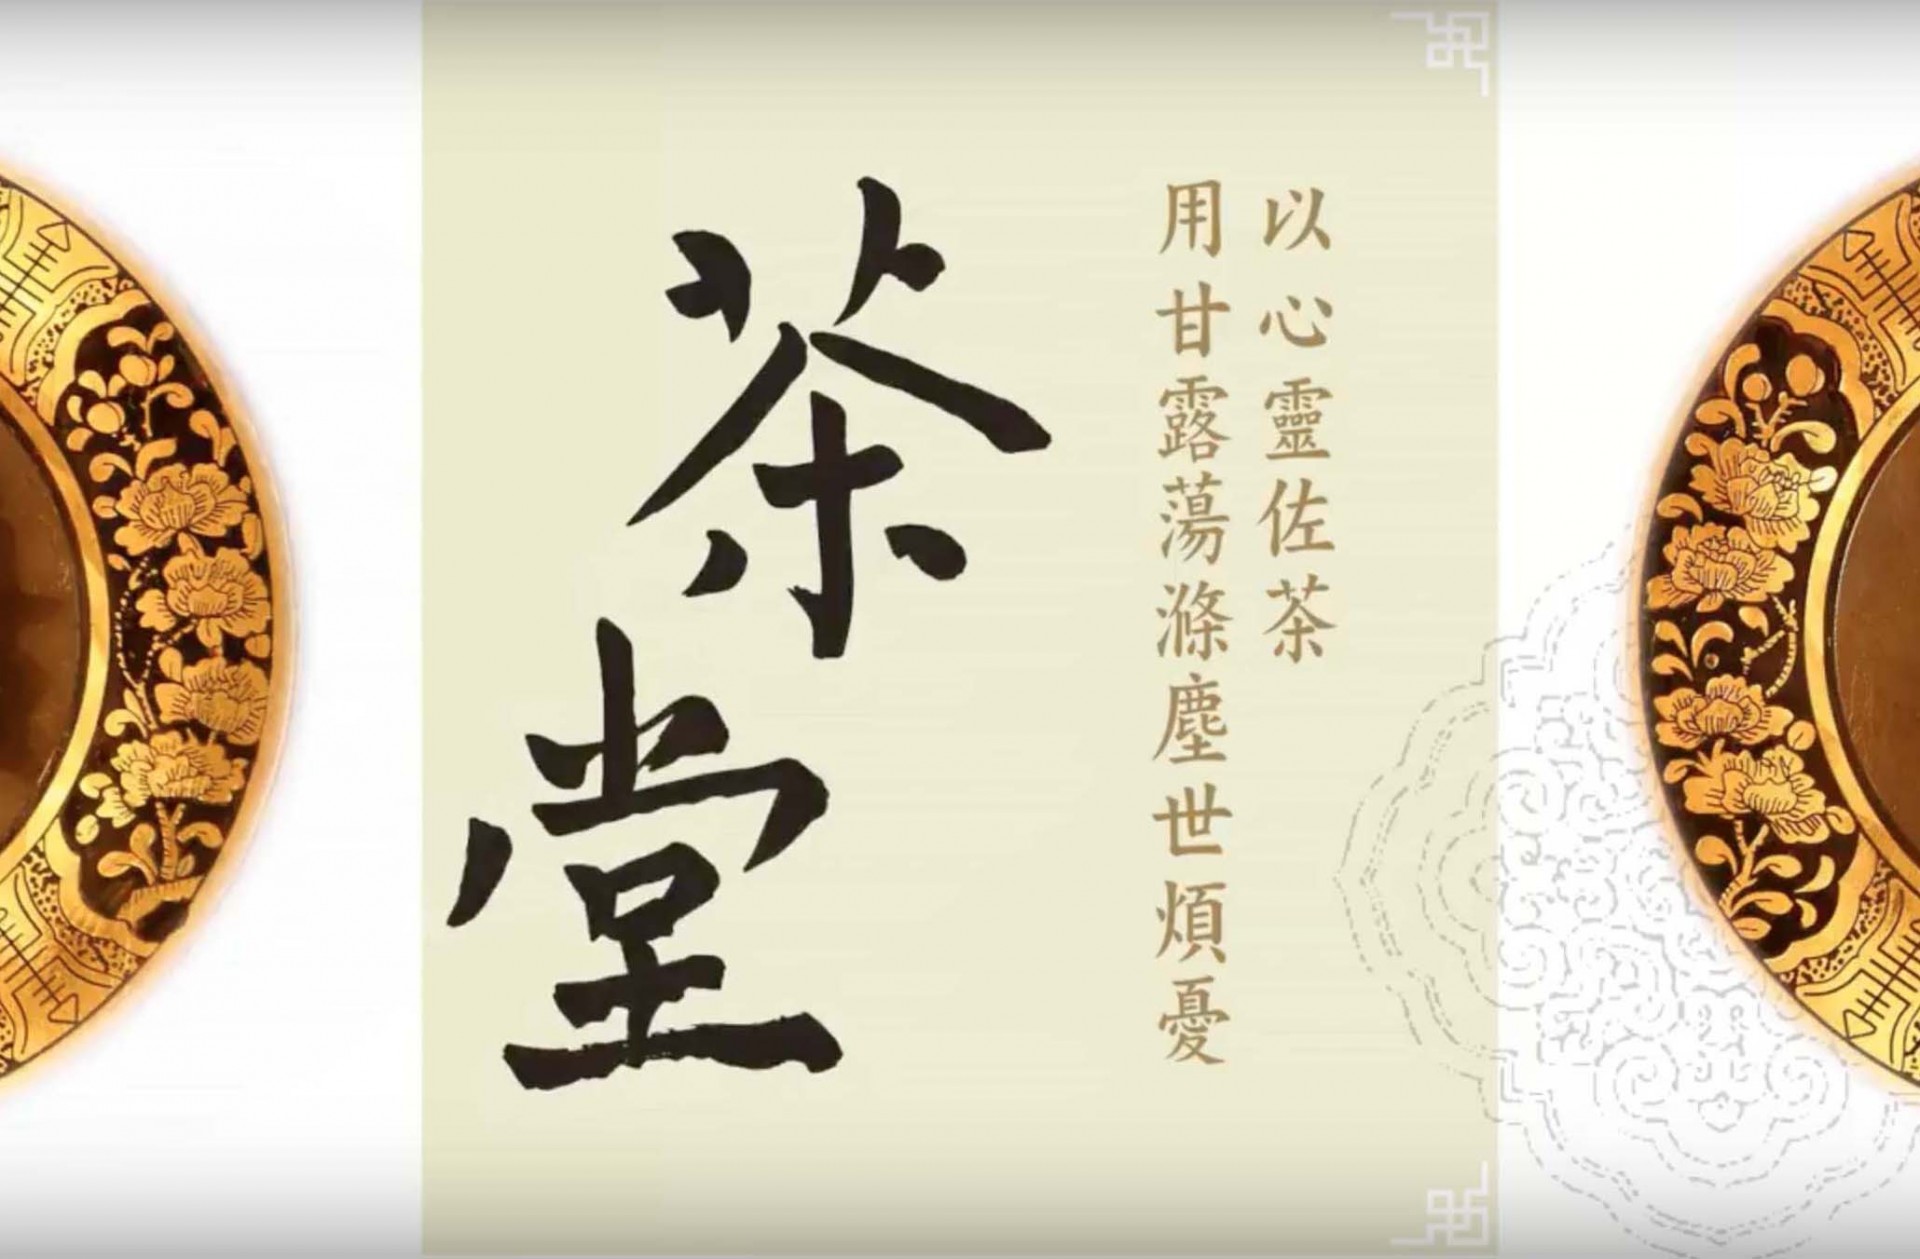 以心靈佐茶
用甘露蕩滌塵世煩憂
茶堂